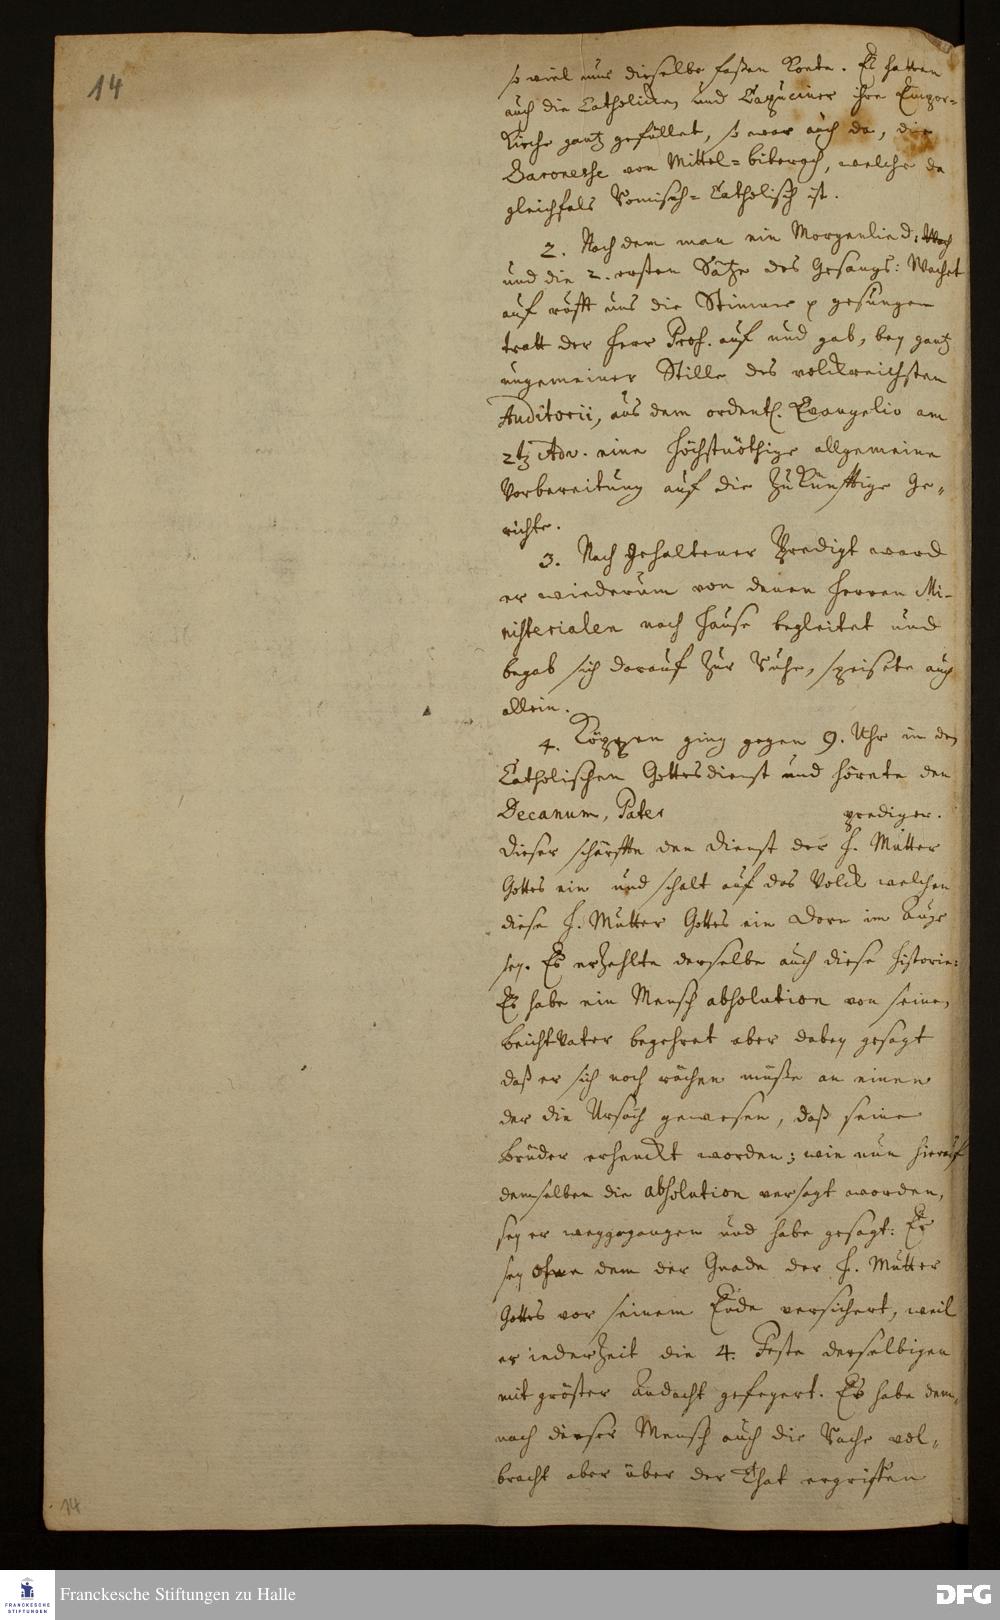 14
so viel nur dieselbe faßen konte. Es hatten
auch die Catholicken und Capuciner ihre Empor-
Kirche gantz gefüllet, so war auch da, die
Baronesse von Mittel-biberach, welche da
gleichfals Römisch-Catholisch ist.
2. Nach dem man ein Morgenlied:
und die 2. ersten Sätze des Gesangs: Wachet
auf rufft uns die Stimme p gesungen
tratt der Herr Prof. auf und gab, bey gantz
ungemeiner Stille des volckreichsten
Auditorii, aus dem ordentl. Evangelio am
2ten Adv. eine höchstnöthige allgemeine
Vorbereitung auf die zukünfftige Ge-
richte.
3. Nach gehaltener Predigt ward
er wiederum von denen Herren Mi-
nisterialen nach Hause begleitet und
begab sich darauf zur Ruhe, speisete auch
allein.
4. Köppen ging gegen 9. Uhr in den
Catholischen Gottesdienst und hörete den
Decanum, Pater predigen.
Dieser schärffte den Dienst der H. Mutter
Gottes ein und schalt auf das Volck welchen
diese H. Mutter Gottes ein Dorn im Auge
sey. Es erzehlte derselbe auch diese Historie:
Es habe ein Mensch absolution von seinem
Beicht Vater begehret aber dabey gesagt
daß er sich noch rächen müße an einen
der die Ursach gewesen, daß seine
Brüder erhenckt worden; wie nun hierauf
demselben die absolution versagt worden,
sey er weggegangen und habe gesagt: Er
sey ohne dem der Gnade der H. Mutter
Gottes vor seinem Ende versichert, weil
er iederzeit die 4. Feste derselbigen
mit gröster Andacht gefeyert. Es habe dem-
nach dieser Mensch auch die Rache vol-
bracht aber über der That ergriffen
14
FRANCKESCHE
STIFTUNGEN
Franckesche Stiftungen zu Halle
DFG